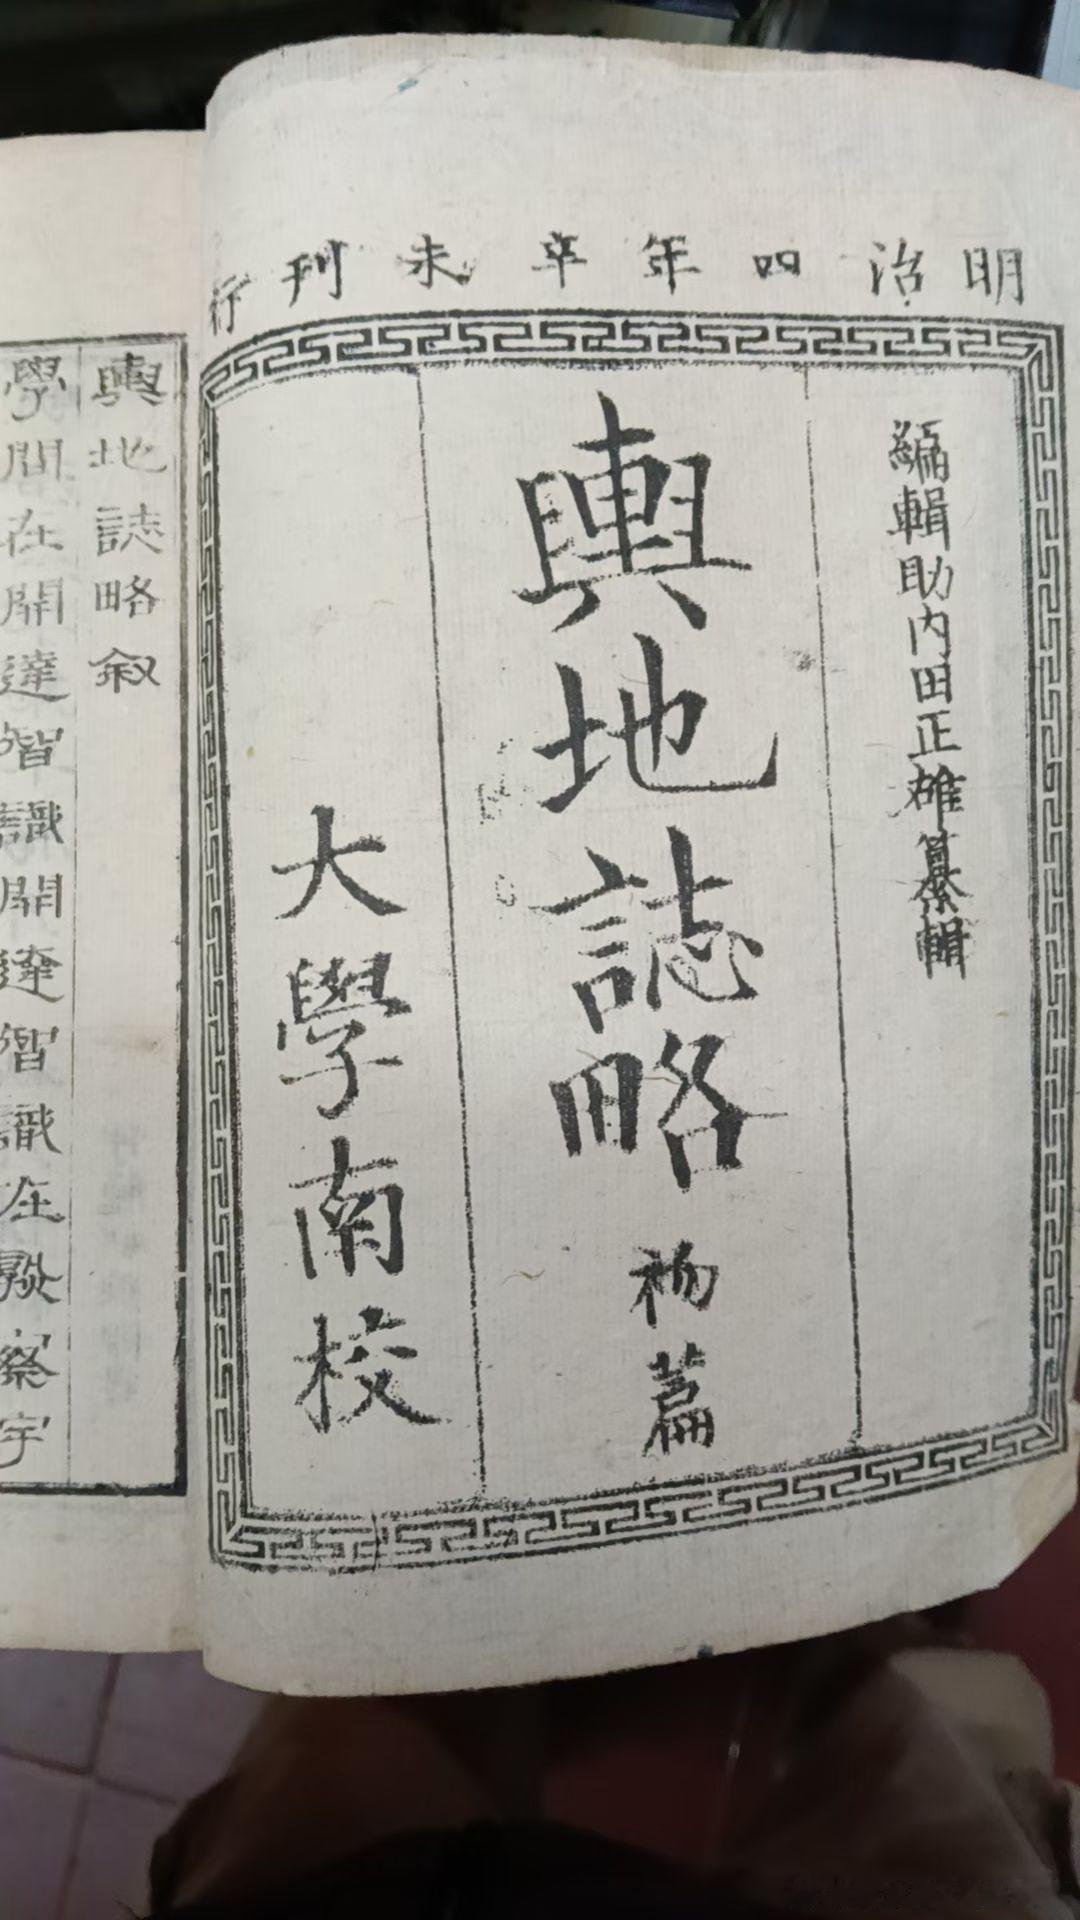 明治四年辛未刊行
編輯助内田正雄纂輯
輿地誌略
初篇
大學南校
輿地誌略叙
學問在開達智識開達智識在熟察宇